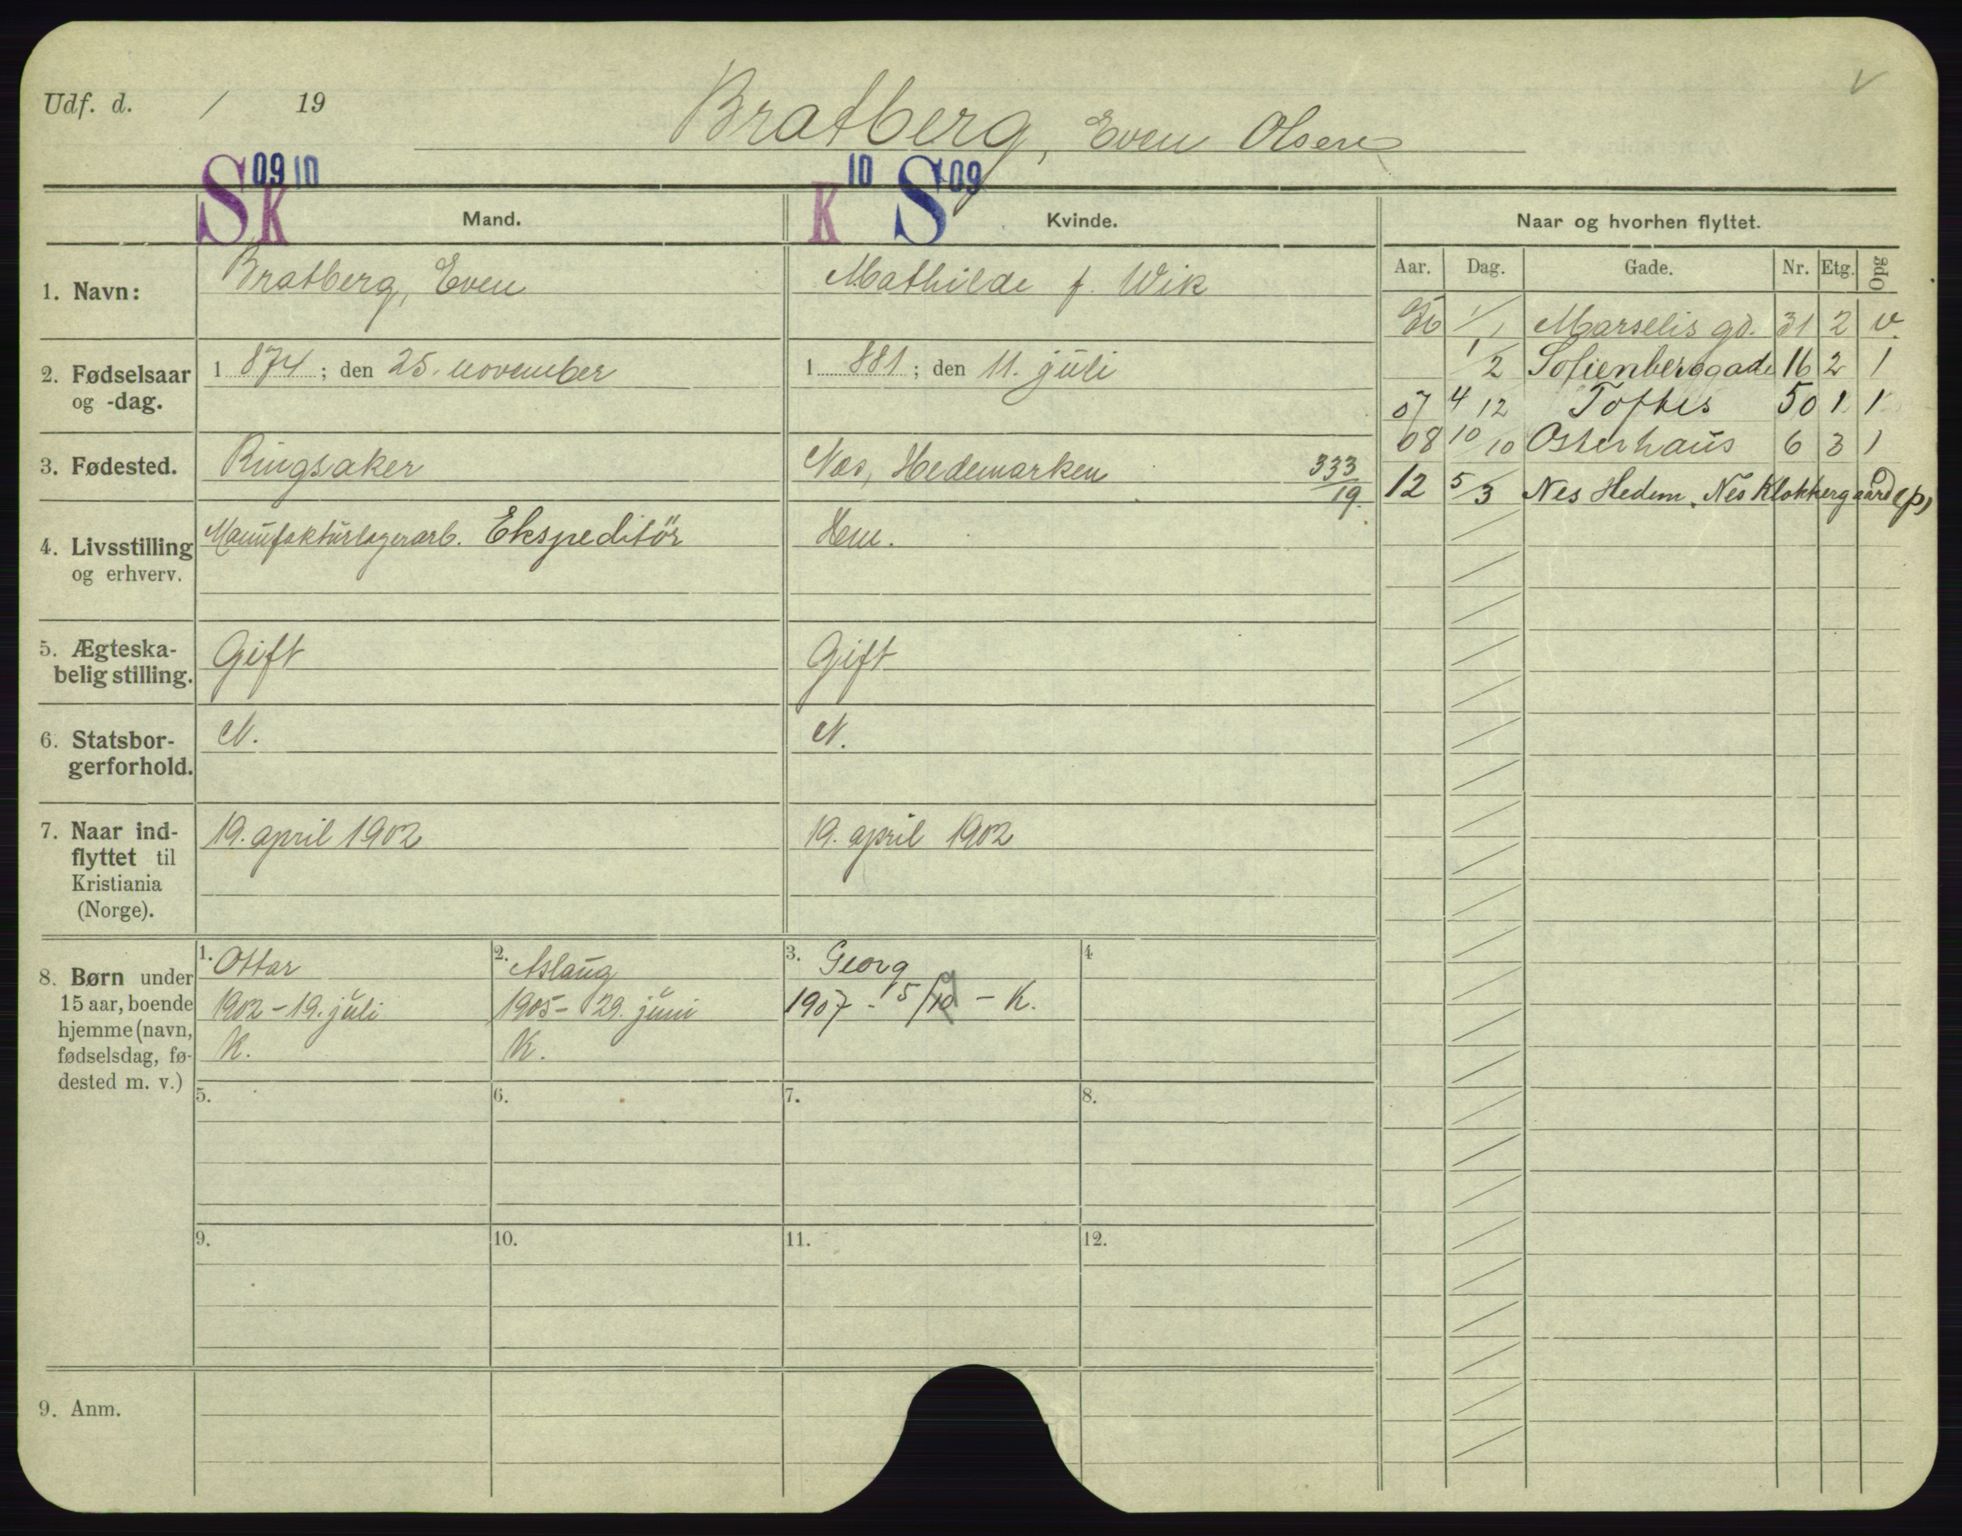 Udf. d. / 19
Bratberg, Even Olsen
V
S 09 K 10
K 10 S 09
Mand.
Kvinde.
Naar og hvorhen flyttet.
Aar. Dag. Gade. Nr. Etg. Opg
1. Navn:
Bratberg, Even
Mathilde f. Wik
2. Fødselsaar
og -dag.
1 874 ; den 25. november
1 881 ; den 11. juli
3. Fødested.
Ringsaker
Næs, Hedemarken
333/19.
4. Livsstilling
og erhverv.
Manufakturlagerarb. Ekspeditör
Hem.
5. Ægteska-
belig stilling.
Gift
Gift
6. Statsbor-
gerforhold.
N.
N.
7. Naar ind-
flyttet til
Kristiania
(Norge).
19. april 1902
19. april 1902
8. Børn under
15 aar, boende
hjemme (navn,
fødselsdag, fø-
dested m. v.)
1. Ottar
1902 - 19. juli
K.
2. Aslaug
1905 - 29. juni
K.
3. Georg
1907 - 5/9 - K.
4
5.
6.
7.
8.
9.
10.
11.
12.
9. Anm.
06 1/1 Marselis gd. 31 2 v.
1/2 Sofienberggade 16 2 1
07 4/12 Toftes 50 1 1
08 10/10 Osterhaus 6 3 1
12 5/3 Nes Hedem. Nes Klokkergaard (p)